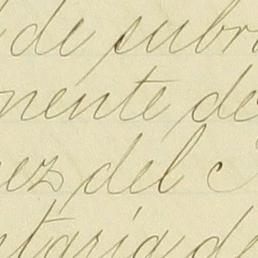 de subr
nente de
ez del
taria de